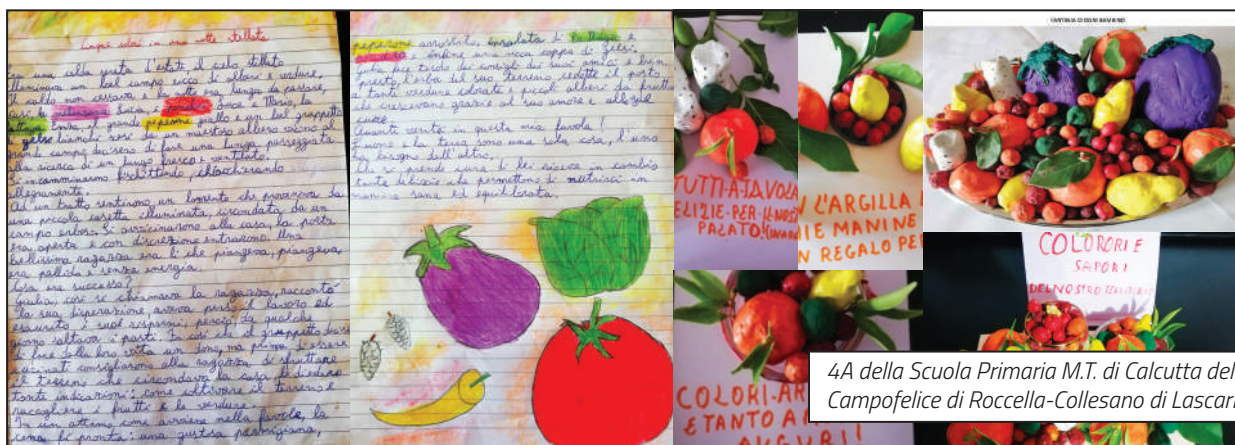 Cinque colori in una notte stellata
Era una calda serata d'estate il cielo stellato
illuminava un bel campo ricco di alberi e verdure,
Il caldo non cessava e la notte era lunga da passare,
Così la melanzana Lucia il pomodoro Luce e Mario, la
lattuga Linda, il grande peperone giallo e un bel grappetto
di gelsi bianchi scesi da un maestoso albero vicino al
grande campo decisero di fare una lunga passeggiata
alla ricerca di un luogo fresco e ventilato.
Si incamminarono fischiettando, chiacchierando
allegramente.
Ad un tratto sentirono un lamento che proveniva da
una piccola casetta illuminata, circondata da un
campo erboso. Si avvicinarono alla casa, la porta
era aperta e con discrezione entrarono. Una
bellissima ragazza era lì che piangeva, piangeva,
era pallida e senza energia.
Cosa era successo?
Giulia, così si chiamava la ragazza, raccontò
la sua disperazione, aveva perso il lavoro ed
esaurito i suoi risparmi, perciò da qualche
giorno saltava i pasti. Fu così che il grappetto decise
di fare della loro vita un dono, ma prima d'essere
cucinati consigliarono alla ragazza di sfruttare
il terreno che circondava la casa le diedero
tante indicazioni: come coltivare il terreno e
raccogliere i frutti e le verdure.
In un attimo come avviene nelle favole, la
cena fu pronta: una gustosa parmigiana,
peperone arrostito, insalata di lattuga e
pomodoro e infine una ricca coppa di gelsi.
Giulia fece tesoro dei consigli dei suoi amici e ben
presto l'erba del suo terreno cedette il posto
a tante verdure colorate e piccoli alberi da frutto
che crescevano grazie al suo amore e alle sue
cure.
Quanta verità in questa mia favola!
L'uomo e la terra sono una sola cosa, l'uno
ha bisogno dell'altro.
Chi si prende cura di lei riceve in cambio
tante delizie che permettono di nutrirci in
maniera sana ed equilibrata.
TUTTI-A-TAVOLA
ELIZIE-PER-IL-NOST
PALATO!
N L'ARGILLA E
IE MANINE
N REGALO PER
COLORI-AR
E TANTO A
AUGURI!
FANTASIA DI OGNI BAMBINO
COLORORI E
SAPORI
DEL NOSTRO TERRITORIO
4A della Scuola Primaria M.T. di Calcutta del
Campofelice di Roccella-Collesano di Lascari